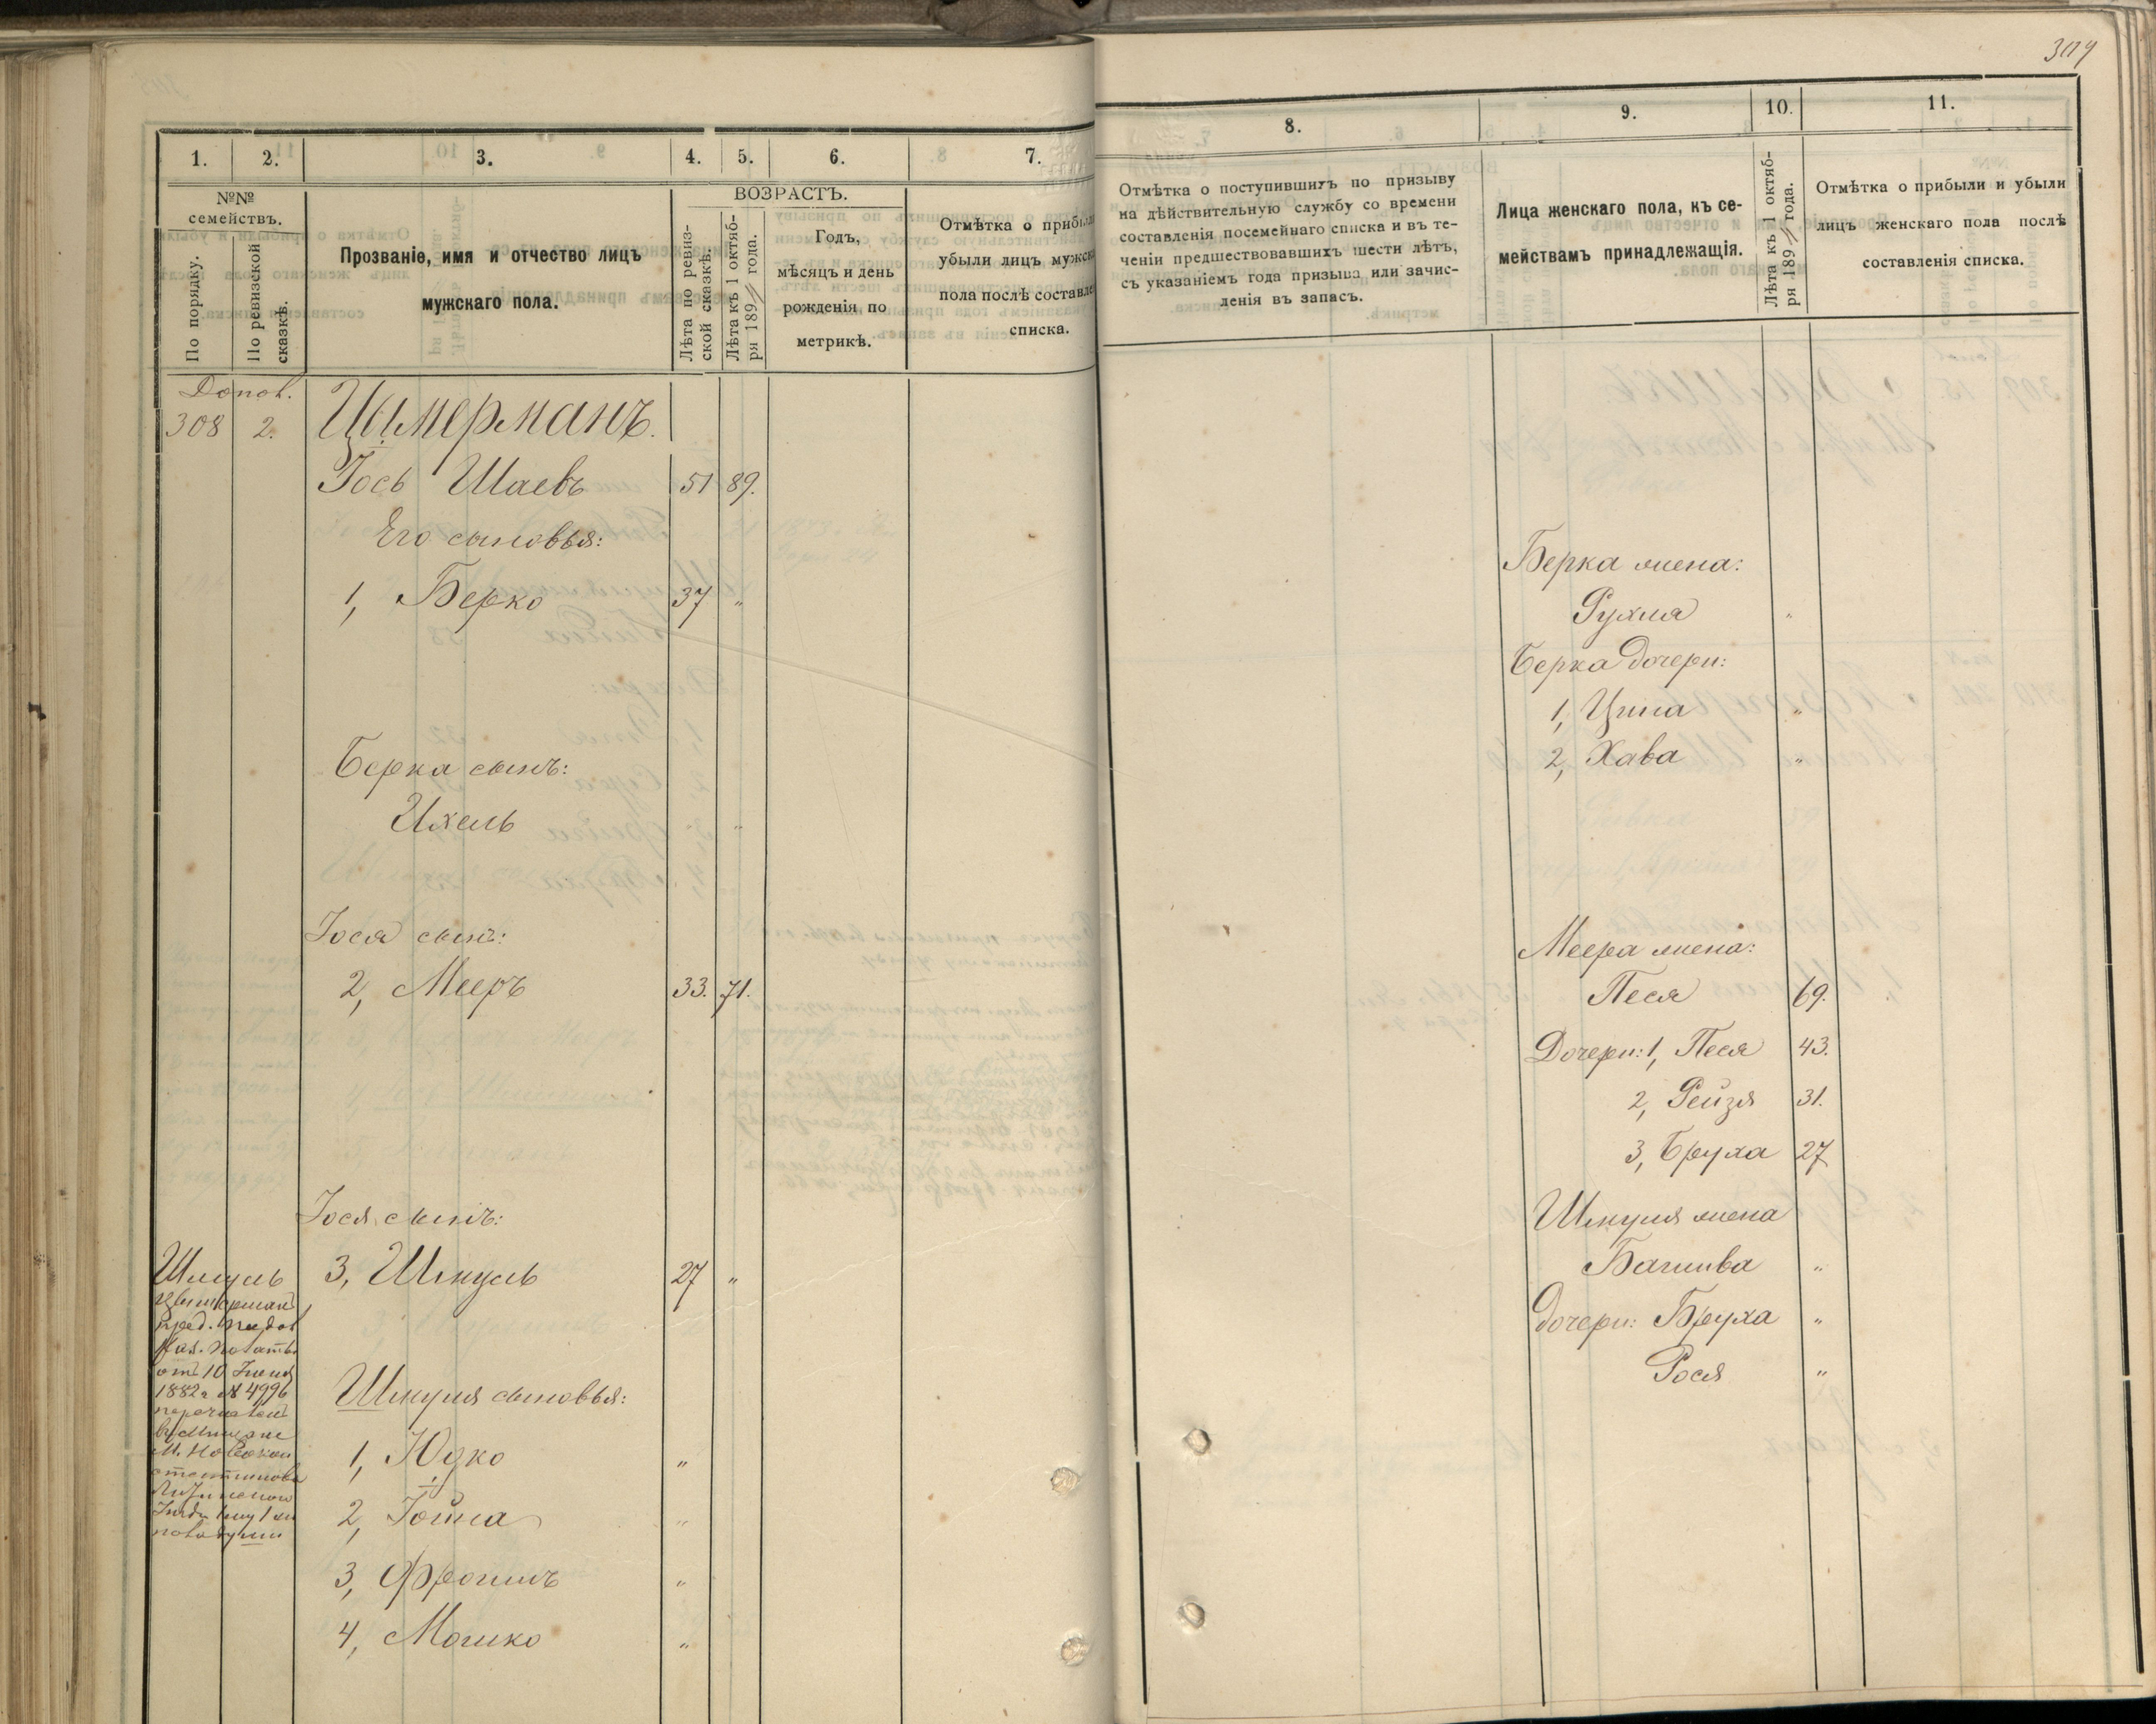 304
1. 2. 3. 4. 5. 6. 7.
№№ семействъ.
По порядку.
По ревизской сказкѣ.
Прозваніе, имя и отчество лицъ
мужскаго пола.
ВОЗРАСТЪ.
Лѣта по ревиз-
ской сказкѣ.
Лѣта къ 1 октяб-
ря 189 года.
Годъ,
мѣсяцъ и день
рожденія по
метрикѣ.
Отмѣтка о прибыли
убыли лицъ мужска
пола послѣ составле
списка.
Допол.
308 2. Цимерманъ.
Іось Шаевъ 51 89.
Его сыновья:
1, Берко 37 "
Берка сынъ:
Ихель " "
Іося сынъ:
2, Мееръ 33. 71.
Іося сынъ:
3, Шмуль 27 "
Шмуль
Цымерманъ
пред.
Каз. Палаты
отъ 10 Іюня
1882 г № 4996
перечислен
въ Мещане
М. Новокон
стантинова
Шмуля сыновья:
1, Юдко "
2, Іойна "
3, Фроимъ "
4, Мошко "
8. 9. 10. 11.
Отмѣтка о поступившихъ по призыву
на дѣйствительную службу со времени
составленія посемейнаго списка и въ те-
ченіи предшествовавшихъ шести лѣтъ,
съ указаніемъ года призыва или зачис-
ленія въ запасъ.
Лица женскаго пола, къ се-
мействамъ принадлежащія.
Лѣта къ 1 октяб-
ря 189 года.
Отмѣтка о прибыли и убыли
лицъ женскаго пола послѣ
составленія списка.
Берка жена:
Рухля "
Берка дочери:
1, Ципа "
2, Хава "
Меера жена:
Песя 69.
Дочери: 1, Песя 43.
2, Рейзя 31.
3, Бруха 27
Шмуля жена
Башива "
дочери: Бруха "
Рося "